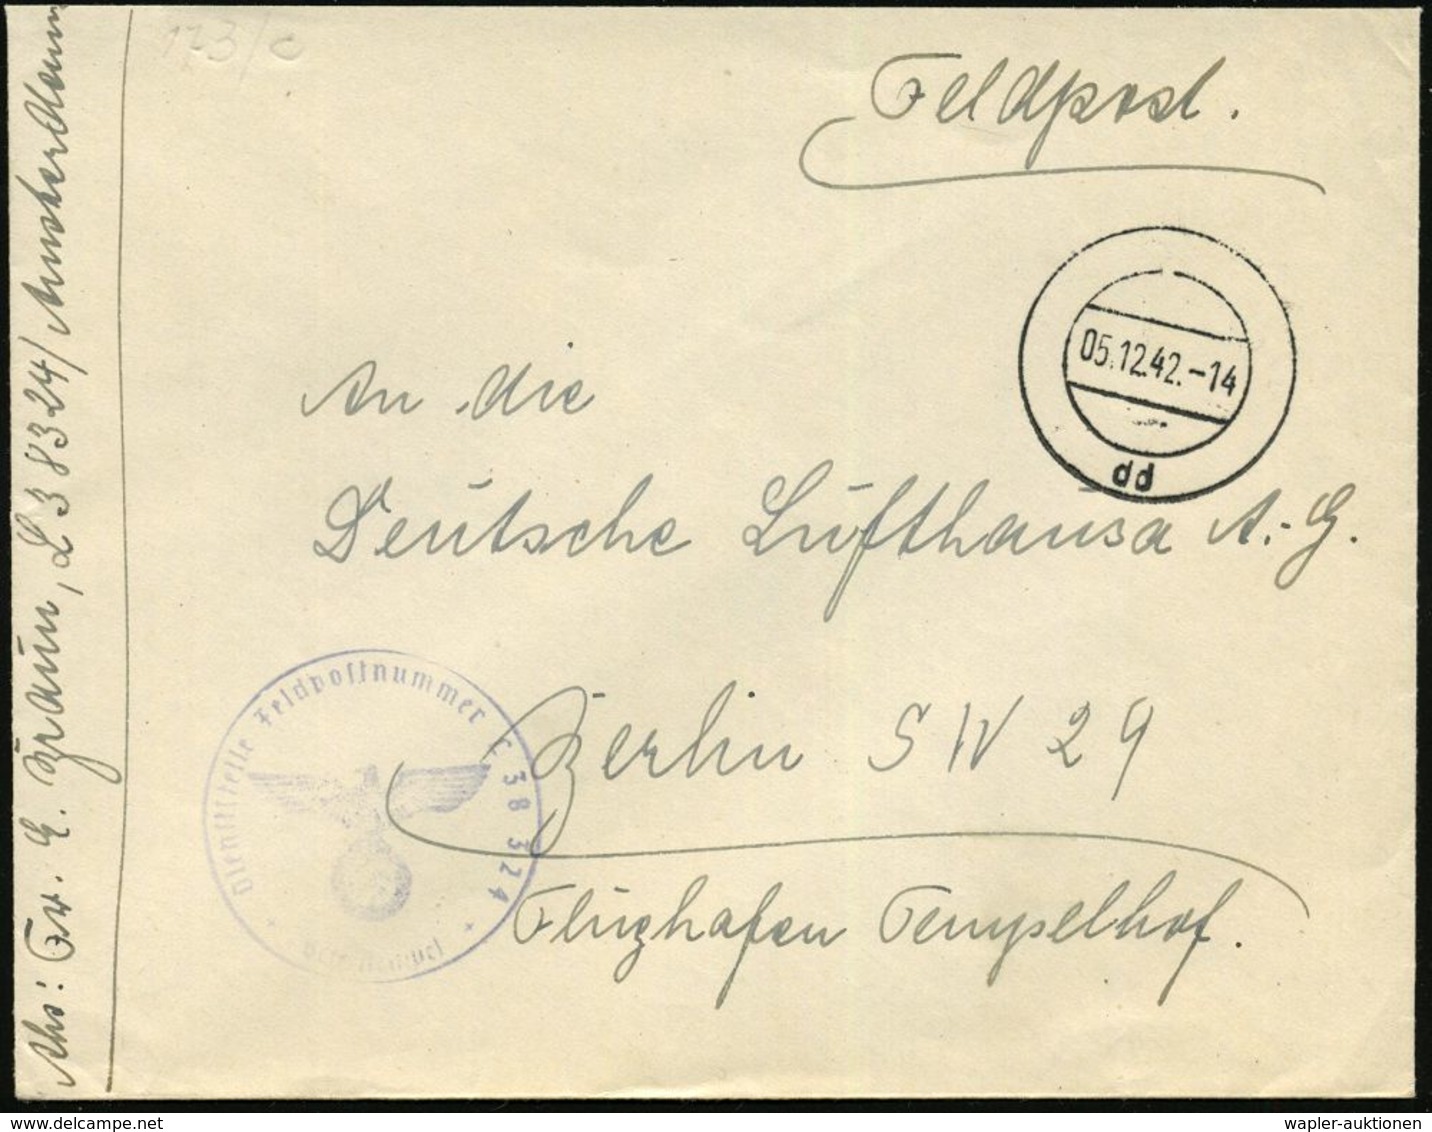 173/c
Feldpost.
05.12.42.-14
dd
An die
Deutsche Lufthansa A.-G.
Berlin SW 29
Flughafen Tempelhof.
Dienststelle Feldpostnummer L 38 324
Abs: Fr. E. Braun, L 38324/ Amsterdam
wapler-auktionen